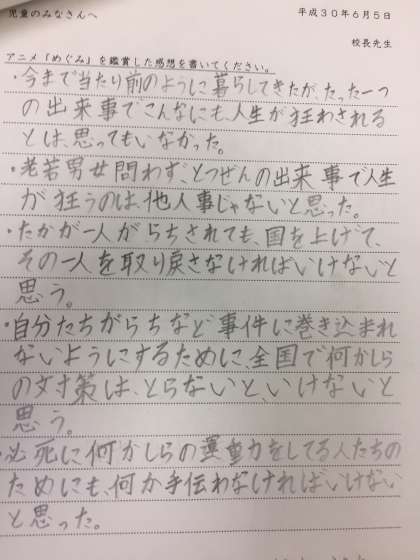 児童のみなさんへ
平成30年6月5日
校長先生
アニメ「めぐみ」を鑑賞した感想を書いてください。
・今まで当たり前のように暮らしてきたが、たった一つ
の出来事でこんなにも、人生が狂わされる
とは、思ってもいなかった。
・老若男女問わず、とつぜんの出来事で人生
が狂うのは、他人事じゃないと思った。
・たかが一人がらちされても、国を上げて、
その一人を取り戻さなければいけないと
思う。
・自分たちがらちなど事件に巻き込まれ
ないようにするために、全国で何かしら
の対策は、とらないと、いけないと
思う。
・必死に何かしらの運動をしてる人たちの
ためにも、何か手伝わなければいけない
と思った。